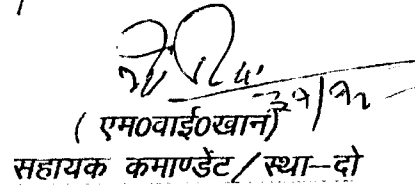 ( एम०वाई०खान)
सहायक कमाण्डेंट/स्था–दो